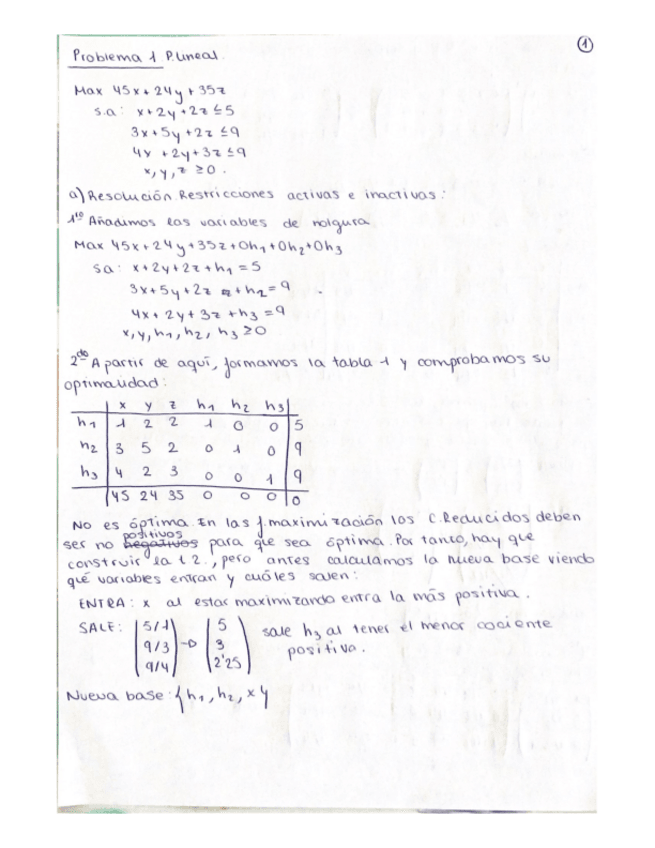 1
Problema 1 P.Lineal.
Max 45x + 24y + 35z
s.a: x+2y+2z ≤ 5
3x+5y+2z ≤ 9
4x +2y+3z ≤ 9
x, y, z ≥ 0.
a) Resolución. Restricciones activas e inactivas:
1º Añadimos las variables de holgura
Max 45x+24y+35z+0h1+0h2+0h3
s.a: x+2y+2z+h1 = 5
3x+5y+2z +h2 = 9
4x+2y+3z +h3 = 9
x, y, h1, h2, h3 ≥ 0
2do A partir de aquí, formamos la tabla 1 y comprobamos su
optimalidad:
x y z h1 h2 h3
h1 1 2 2 1 0 0 5
h2 3 5 2 0 1 0 9
h3 4 2 3 0 0 1 9
45 24 35 0 0 0 0
No es óptima. En las f.maximización los C.Reducidos deben
ser no negativos positivos para que sea óptima. Por tanto, hay que
construir la t 2., pero antes calculamos la nueva base viendo
qué variables entran y cuáles salen:
ENTRA: x al estar maximizando entra la más positiva.
SALE: 5/1 5 sale h3 al tener el menor cociente
9/3 → 3 positivo.
9/4 2'25
Nueva base: {h1, h2, x}